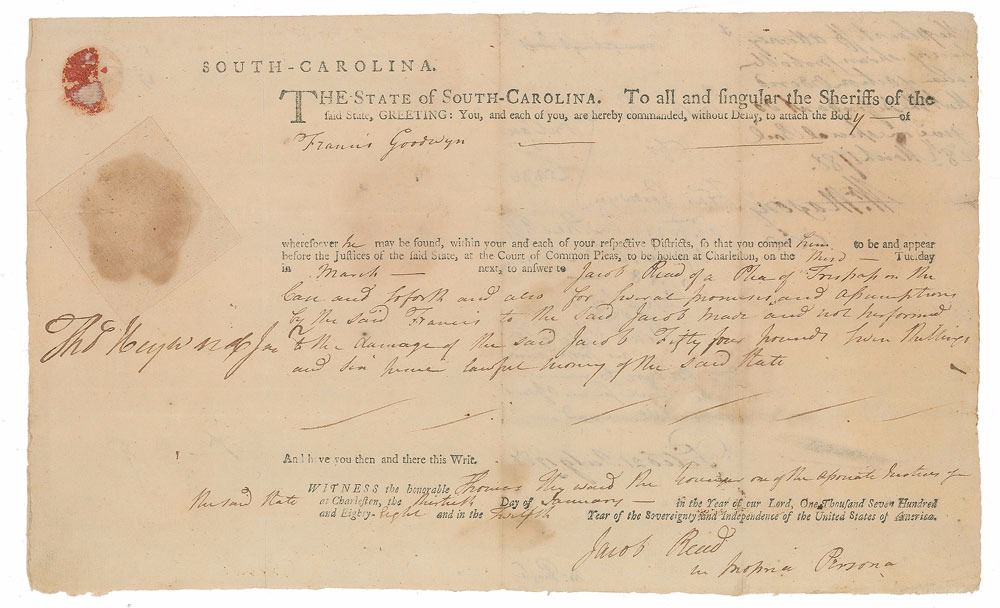 SOUTH-CAROLINA.
THE STATE of SOUTH-CAROLINA. To all and singular the Sheriffs of the
said State, GREETING: You, and each of you, are hereby commanded, without Delay, to attach the Body of
Francis Goodwyn
wheresoever he may be found, within your and each of your respective Districts, so that you compel him to be and appear
before the Justices of the said State, at the Court of Common Pleas, to be holden at Charleston, on the third Tuesday
in March next, to answer to Jacob Read of a Plea of Trespass on the
Case and soforth and also for several promises and assumptions
by the said Francis to the said Jacob made and not performed
Thos Heyward Jun
to the damage of the said Jacob Fifty four pounds seven shillings
and six pence lawful money of the said State
And have you then and there this Writ.
WITNESS the honorable Thomas Heyward the Younger one of the Associate Justices for
the said State at Charleston, the Day of January in the Year of our Lord, One Thousand Seven Hundred
and Eighty-eight and in the Twelfth Year of the Sovereignty and Independence of the United States of America.
Jacob Read
in propria Persona